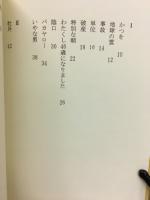 I
かつを 10
地球の霊 12
事故 14
単位 16
破産 18
特別な朝 22
わたくし46歳になりました 26
陰口 30
バカヤロー 34
いやな男 38
II
社外 42